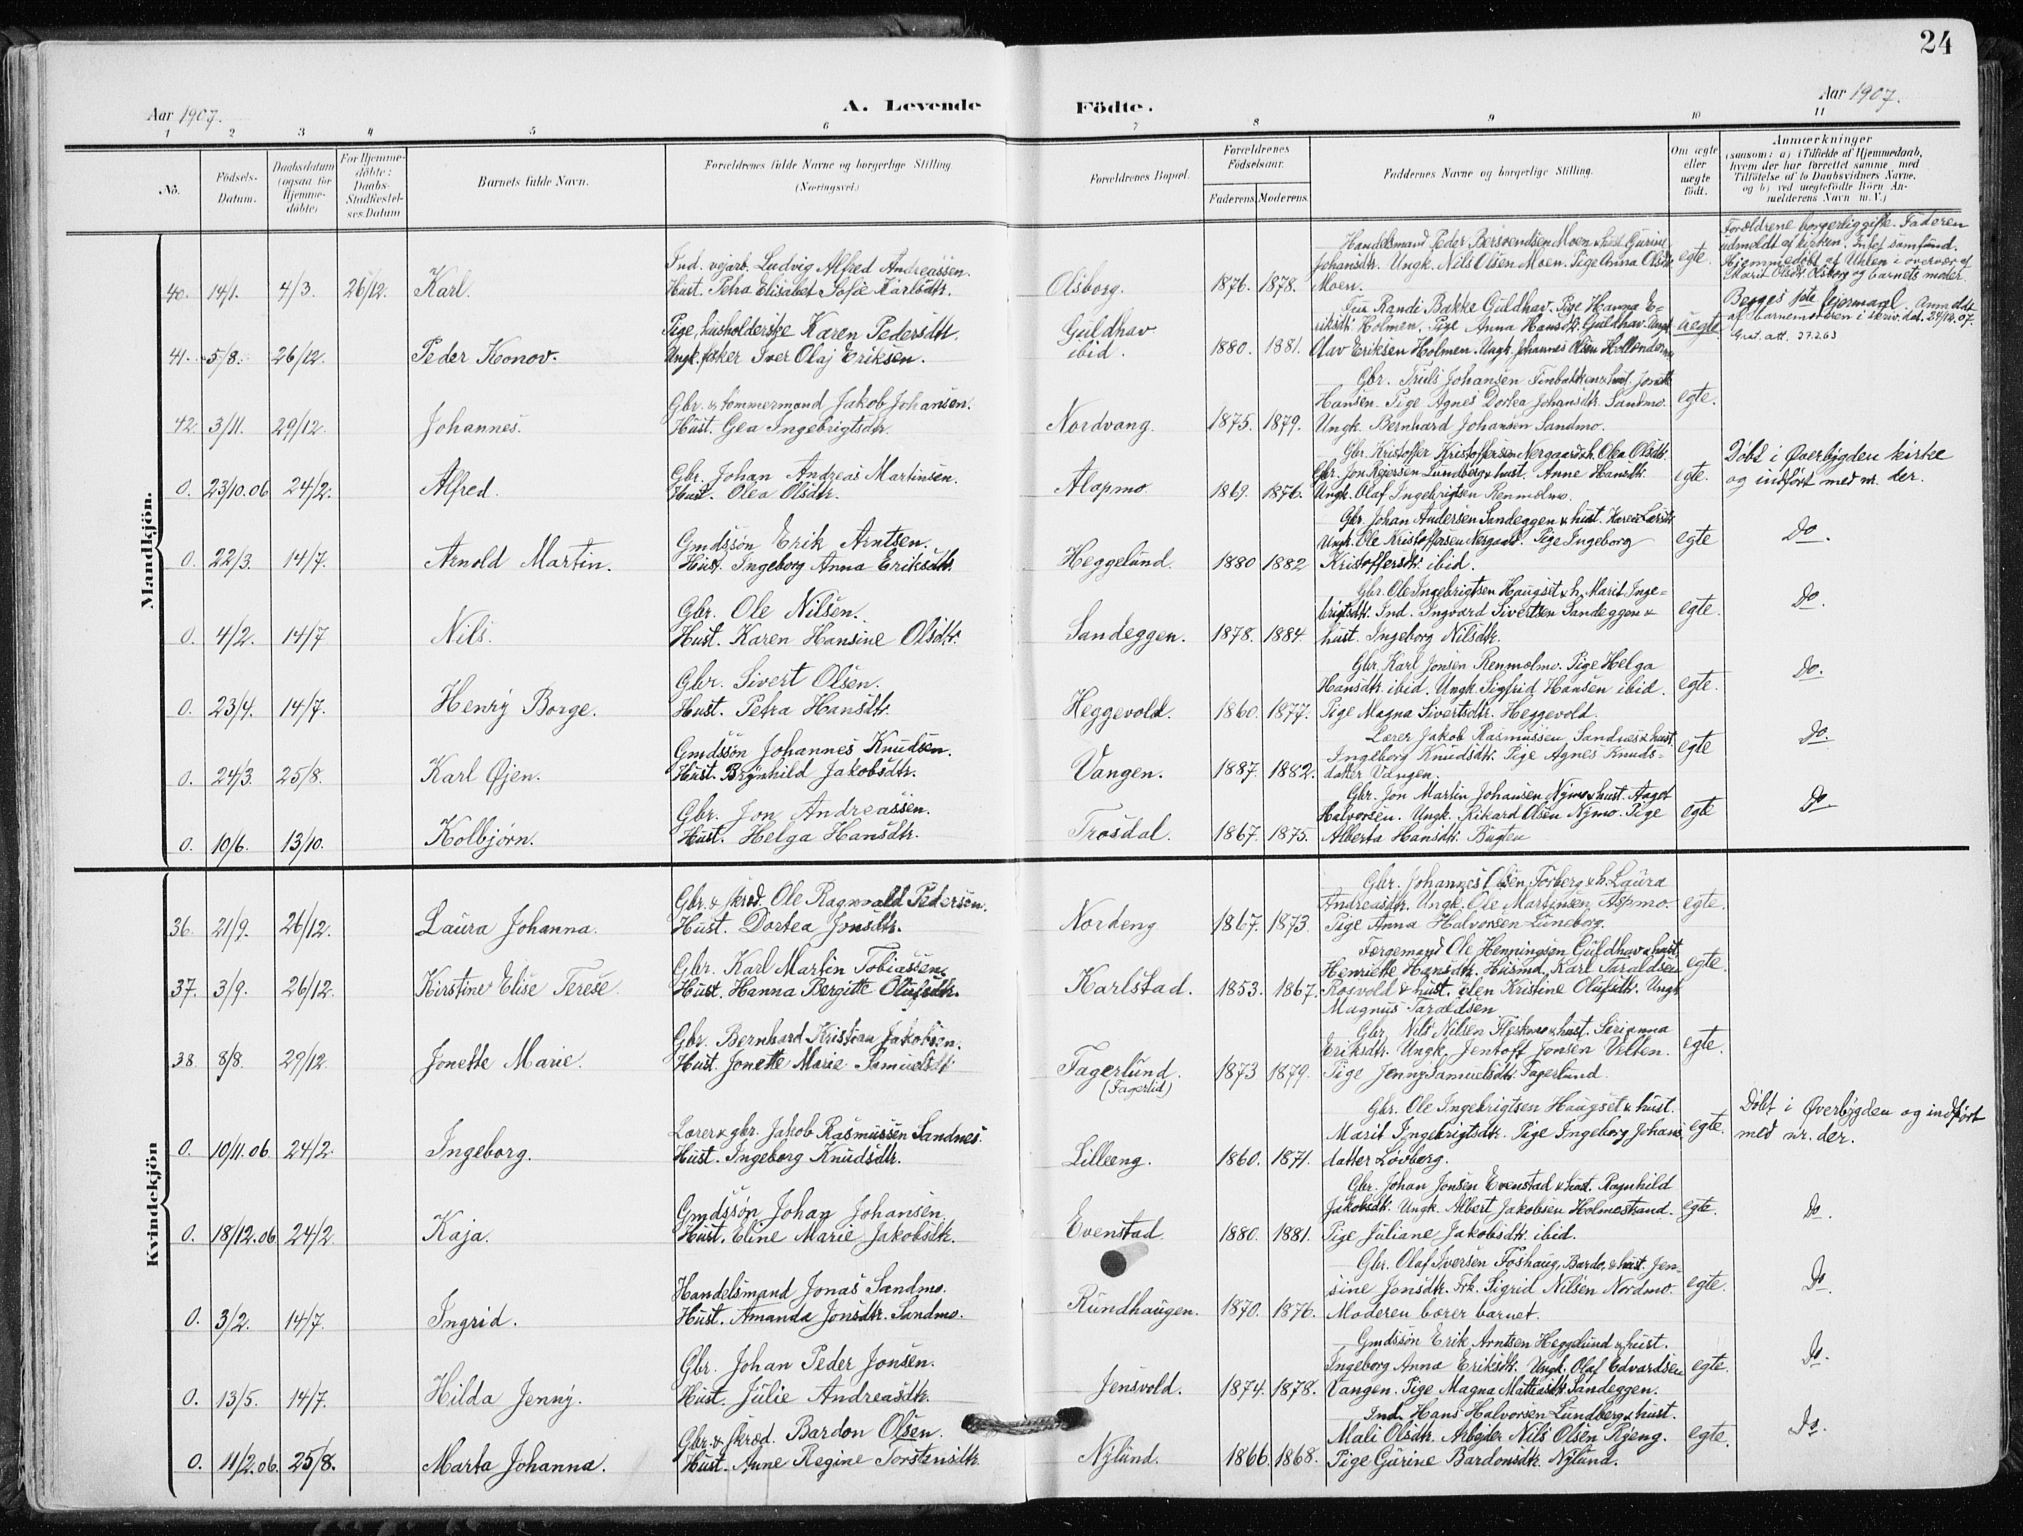 24
Aar 1907.
A. Levende Födte.
Aar 1907.
1 2 3 4 5 6 7 8 9 10 11
No.
Födsels-Datum.
Daabsdatum (ogsaa for Hjemme-döbte)
For Hjemme-döbte: Daabs-Stadfæstel-ses Datum
Barnets fulde Navn.
Forældrenes fulde Navne og borgerlige Stilling (Næringsvei.)
Forældrenes Bopæl.
Forældrenes Födselsaar.
Faderens. Moderens.
Faddernes Navne og borgerlige Stilling.
Om ægte eller uægte födt.
Anmærkninger
(saasom: a) i Tilfælde af Hjemmedaab, hvem der har forrettet samme, med Tilföielse af to Daabsvidners Navne, og b) ved uægtefödte Börn An-melderens Navn m. V.)
Mandkjön.
40. 14/1. 4/3. 26/12. Karl.
Ind. vejarb. Ludvig Alfred Andreassen.
Hust. Petra Elisabet Sofie Karlsdtr.
Olsborg. 1876. 1878.
Handelsmand Peder Bersvendsen Moen & hust Gurine
Johansdtr. Ungk. Nils Olsen Moen. Pige Anna Olsdtr
Moen.
egte.
Forældrene borgerlig gifte. Faderen
udmeldt af kirken. Intet samfund.
Hjemmedøbt af Uhlen i overvær af
Marit Olsdtr. Olsborg og barnets moder.
41. 5/8. 26/12. Peder Konov.
Pige, husholderske Karen Pedersdtr.
Ungk. fisker Iver Olaj Eriksen.
Guldhav
ibid. 1880. 1881.
Randi Bakke Guldhav. Pige Hanna E-
riksdtr. Holmen. Pige Anna Hansdtr. Guldhav. Ungk
Olav Eriksen Holmen. Ungk. Johannes Olsen Hollenderen
uegte.
Begges 1ste lejermaal. Anmeldt
af barnemoren i skriv. dat. 24/12.07.
42. 3/11. 29/12. Johannes.
Gbr. & tømmermand Jakob Johansen.
Hust. Gea Ingebrigtsdtr.
Nordvang. 1875. 1879.
Gbr. Truls Johansen Finbakken & hust.
Hansen. Pige Agnes Dortea Johansdtr. Sandmo.
Ungk. Bernhard Johansen Sandmo.
egte.
0. 23/10.06 24/2. Alfred.
Gbr. Johan Andreas Martinsen.
Hust. Olea Olsdtr.
Alapmo. 1869. 1876.
Gbr. Kristoffer Kristoffersen Nergaard & h. Olea Olsdtr.
Gbr. Jon Rejersen Lundberg & hust. Anne Hansdtr.
Ungk. Olaf Ingebrigtsen Renmælmo.
egte.
Døbt i Øverbygden kirke
og indført med nr. der.
0. 22/3. 14/7. Arnold Martin.
Gmdssøn Erik Arntsen.
Hust. Ingeborg Anna Eriksdtr.
Heggelund. 1880 1882
Gbr. Johan Andersen Sandeggen & hust. Karen
Ungk. Ole Kristoffersen Nergaard. Pige Ingeborg
Kristoffersdtr. ibid.
egte
Do.
0. 4/2. 14/7 Nils.
Gbr. Ole Nilsen.
Hust. Karen Hansine Olsdtr.
Sandeggen. 1878. 1884.
Gbr. Ole Ingebrigtsen Haugset & h. Marit Inge-
brigtsdtr. Ind. Ingvard Sivertsen Sandeggen &
hust. Ingeborg Nilsdtr.
egte.
Do.
0. 23/4. 14/7. Henry Borge.
Gbr. Sivert Olsen.
Hust. Petra Hansdtr.
Heggevold. 1860. 1877.
Gbr. Karl Jonsen Renmælmo. Pige Helga
Hansdtr. ibid. Ungk. Sigfrid Hansen ibid.
Pige Magna Sivertsdtr. Heggevold.
egte.
Do.
0. 24/3. 25/8. Karl Øjen.
Gmdssøn Johannes Knudsen.
Hust. Brynhild Jakobsdtr.
Vangen. 1887. 1882.
Lærer Jakob Rasmussen Sandnes & hust.
Ingeborg Knudsdtr. Pige Agnes Knuds-
datter Vangen.
egte
Do.
0. 10/6. 13/10. Kolbjørn.
Gbr. Jon Andreassen.
Hust. Helga Hansdtr.
Trosdal. 1867. 1875.
Gbr. Jon Martin Johansen Nymo & hust. Aaget
Halvorsen. Ungk. Rikard Olsen Nymo. Pige
Alberta Hansdtr. Bugten
egte
Do
Kvindekjön
36. 21/9. 26/12. Laura Johanna.
Gbr. & skræd. Ole Ragnvald Pedersen.
Hust. Dortea Jonsdtr.
Nordeng 1867. 1873.
Gbr. Johannes Olsen Forberg & h. Laura
Andreasdtr. Ungk. Ole Martinsen Aspmo.
Pige Anna Halvorsen Luneborg.
egte.
37. 3/9. 26/12. Kirstine Elise Terese.
Gbr. Karl Martin Tobiassen.
Hust. Hanna Bergitte Olufsdtr.
Karlstad. 1853. 1867.
Færgemand Ole Henningsen Guldhav & hust.
Henriette Hansdtr. Husmd. Karl Taraldsen
Rosvold & hust. Elen Kristine Olufsdtr. Ungk
Magnus Taraldsen
egte.
38. 8/8. 29/12. Jonette Marie.
Gbr. Bernhard Kristian Jakobsen.
Hust. Jonette Marie Samuelsdtr
Fagerlund.
(Fagerlid) 1873 1879.
Gbr. Nils Nilsen Fleskmo & hust. Serianna
Eriksdtr. Ungk. Jentoft Jonsen Velten.
Pige Jenny Samuelsdtr. Fagerlund.
egte.
0. 10/11.06 24/2. Ingeborg.
Lærer & gbr. Jakob Rasmussen Sandnes.
Hust. Ingeborg Knudsdtr.
Lilleeng. 1860. 1871.
Gbr. Ole Ingebrigtsen Haugset & hust.
Marit Ingebrigtsdtr. Pige Ingeborg Johans
datter Løvberg.
egte.
Døbt i Øverbygden og indført
med nr. der.
0. 18/12.06 24/2 Kaja.
Gmdssøn Johan Johansen.
Hust. Eline Marie Jakobsdtr.
Evenstad 1880. 1881.
Gbr. Johan Jonsen Evenstad & hust. Ragnhild
Jakobsdtr. Ungk. Albert Jakobsen Holmestrand.
Pige Juliane Jakobsdtr. ibid.
egte.
Do.
0. 3/2. 14/7. Ingrid.
Handelsmand Jonas Sandmo.
Hust. Amanda Jonsdtr. Sandmo.
Rundhaugen. 1870. 1876.
Gbr. Olaf Iversen Foshaug, Bardo, & hust. Jen-
sine Jonsdtr. Frk. Sigrid Nilsen Nordmo.
Moderen bærer barnet.
egte.
Do.
0. 13/5. 14/7. Hilda Jenny.
Gbr. Johan Peder Jonsen.
Hust. Julie Andreasdtr.
Jensvold. 1874. 1878.
Gmdssøn Erik Arntsen Heggelund & hust.
Ingeborg Anna Eriksdtr. Ungk. Olaf Edvardsen
Vangen. Pige Magna Mattiasdtr. Sandeggen.
egte.
Do.
0. 11/2.06. 25/8. Marta Johanna.
Gbr. & skræd. Bardon Olsen.
Hust. Anne Regine Torstensdtr.
Nylund. 1866. 1868.
Ind. Hans Halvorsen Lundberg & hust.
Mali Olsdtr. Arbejder Nils Olsen Rjeng.
Pige Gurine Bardonsdtr. Nylund.
egte.
Do.